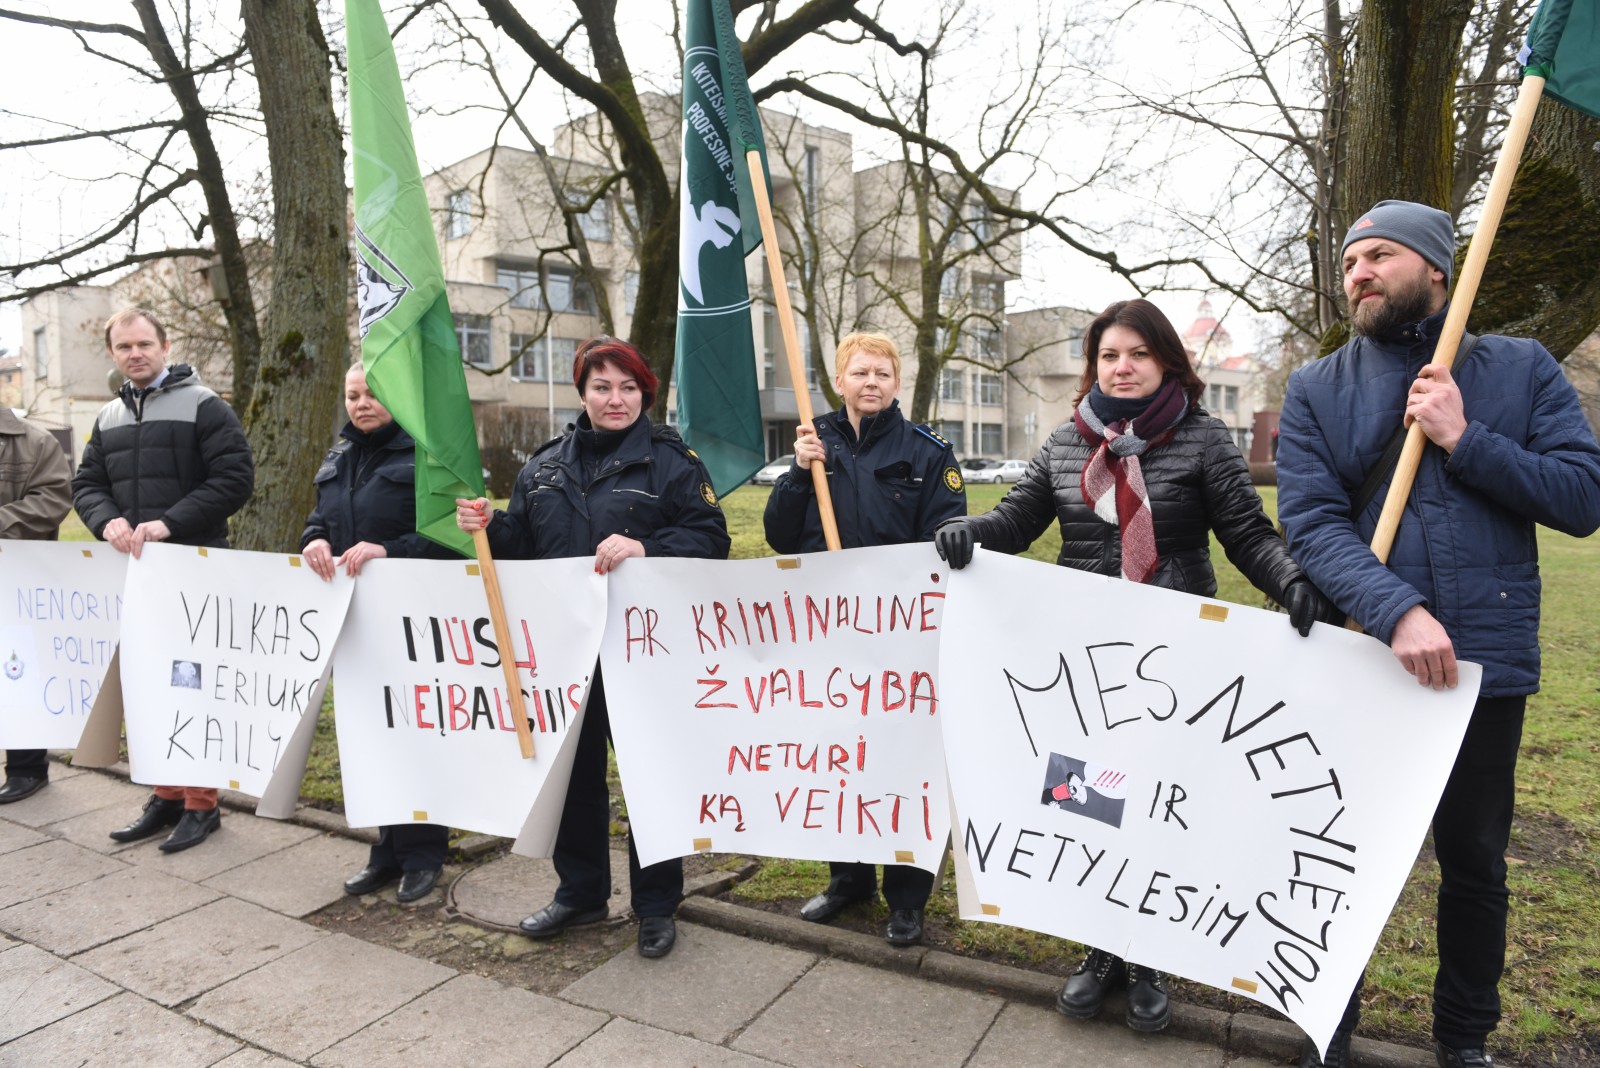 IKITEISMI
PROFESINĖ SĄ
NENORIM
POLITI
CIR
VILKAS
ĖRIUKO
KAILY
MŪSŲ
NEĮBAUGINSI
AR KRIMINALINĖ
ŽVALGYBA
NETURI
KĄ VEIKTI
MES NETYLĖJOM
!!!!
IR
NETYLĖSIM